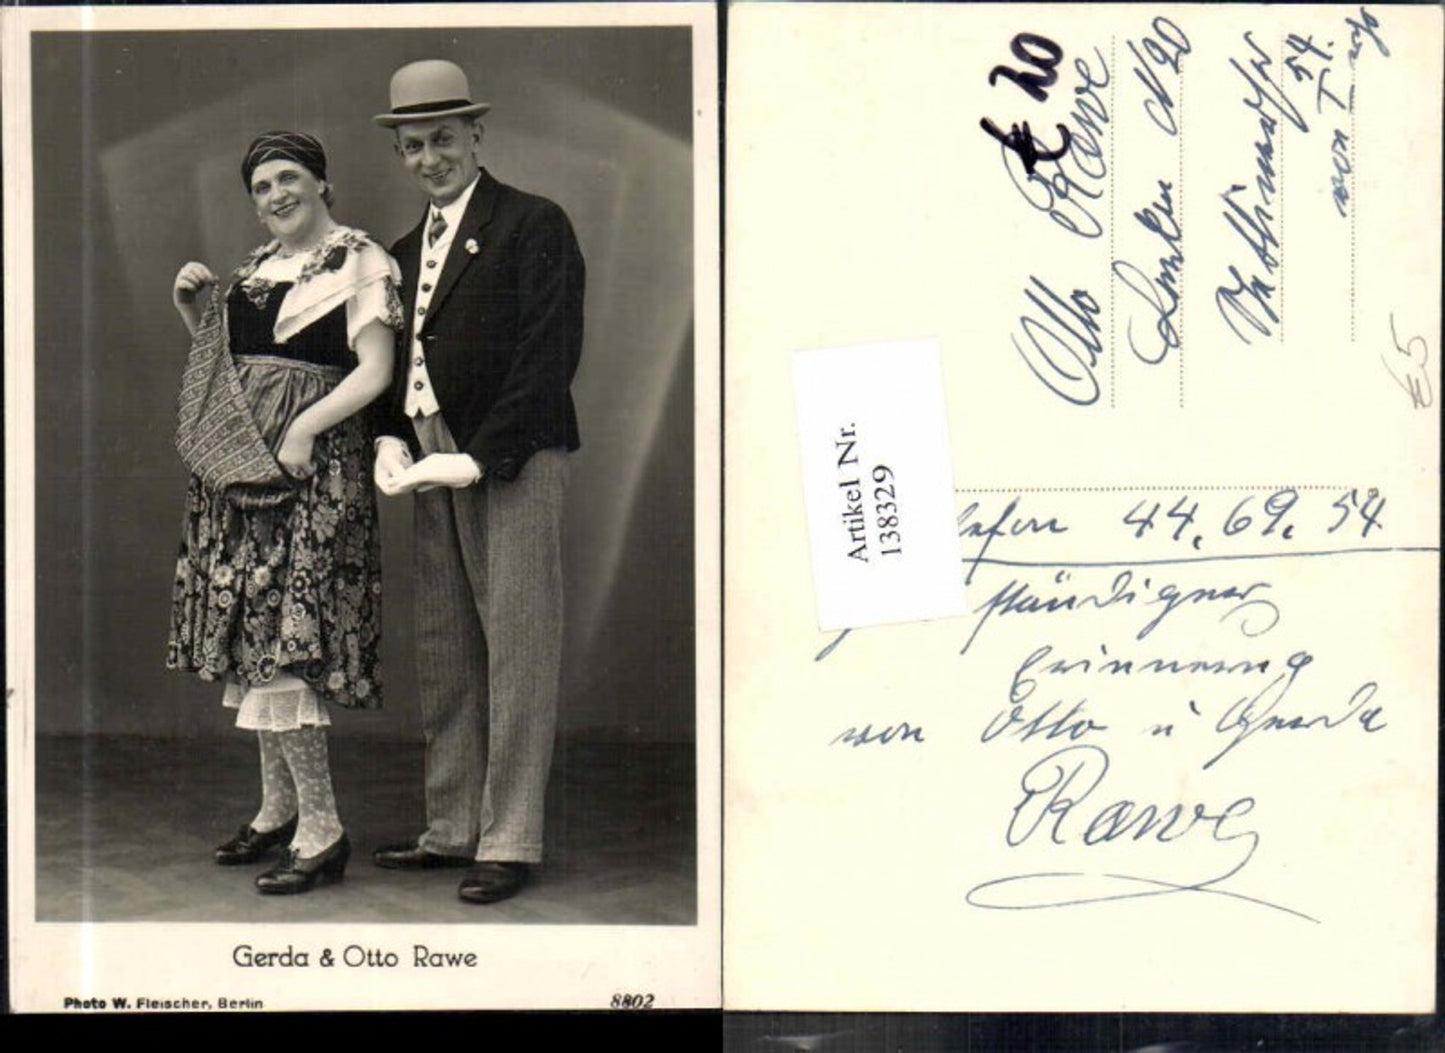 Gerda & Otto Rawe
Photo W. Fleischer, Berlin
8802
€ 20
Otto Rawe
Berlin N 20
54
von I
€5
Artikel Nr.
138329
44. 69. 54
ständigner
Erinnerung
von Otto u Gerda
Rawe